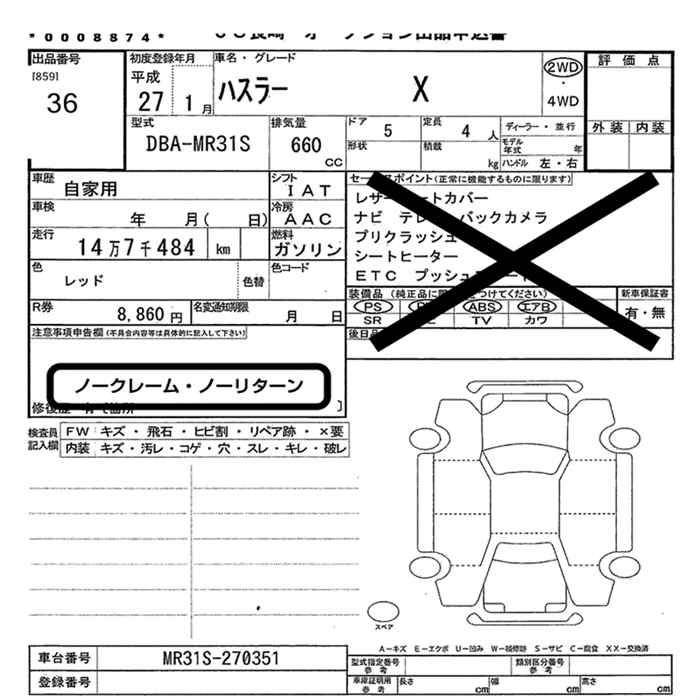 *0008874*
JU長崎 オークション出品申込書
出品番号
[859]
36
初度登録年月
平成
27 1月
車名・グレード
ハスラー X
2WD
・
4WD
評価点
外装 内装
型式
DBA-MR31S
排気量
660
CC
ドア 5
定員 4人
ディーラー・並行
形状
積載 kg
モデル年式 年
ハンドル 左・右
車歴 自家用
シフト IAT
車検 年 月( 日)
冷房 AAC
走行 14万7千484 km
燃料 ガソリン
色 レッド
色替
色コード
R券 8,860円
名変通知期限 月 日
セールスポイント(正常に機能するものに限ります)
レザーシートカバー
ナビ テレビ バックカメラ
プリクラッシュ
シートヒーター
ETC プッシュスタート
装備品 (純正品に限り○をつけてください)
PS ABS エアB
SR TV カワ
新車保証書
有・無
後日品
注意事項申告欄(不具合内容等は具体的に記入して下さい)
ノークレーム・ノーリターン
修復歴 有 [箇所 ]
検査員記入欄
FW キズ・飛石・ヒビ割・リペア跡・×要
内装 キズ・汚レ・コゲ・穴・スレ・キレ・破レ
スペア
A−キズ E−エクボ U−凹み W−補修跡 S−サビ C−腐食 XX−交換済
車台番号 MR31S-270351
登録番号
型式指定番号 参考
類別区分番号 参考
車庫証明用 参考
長さ cm
幅 cm
高さ cm